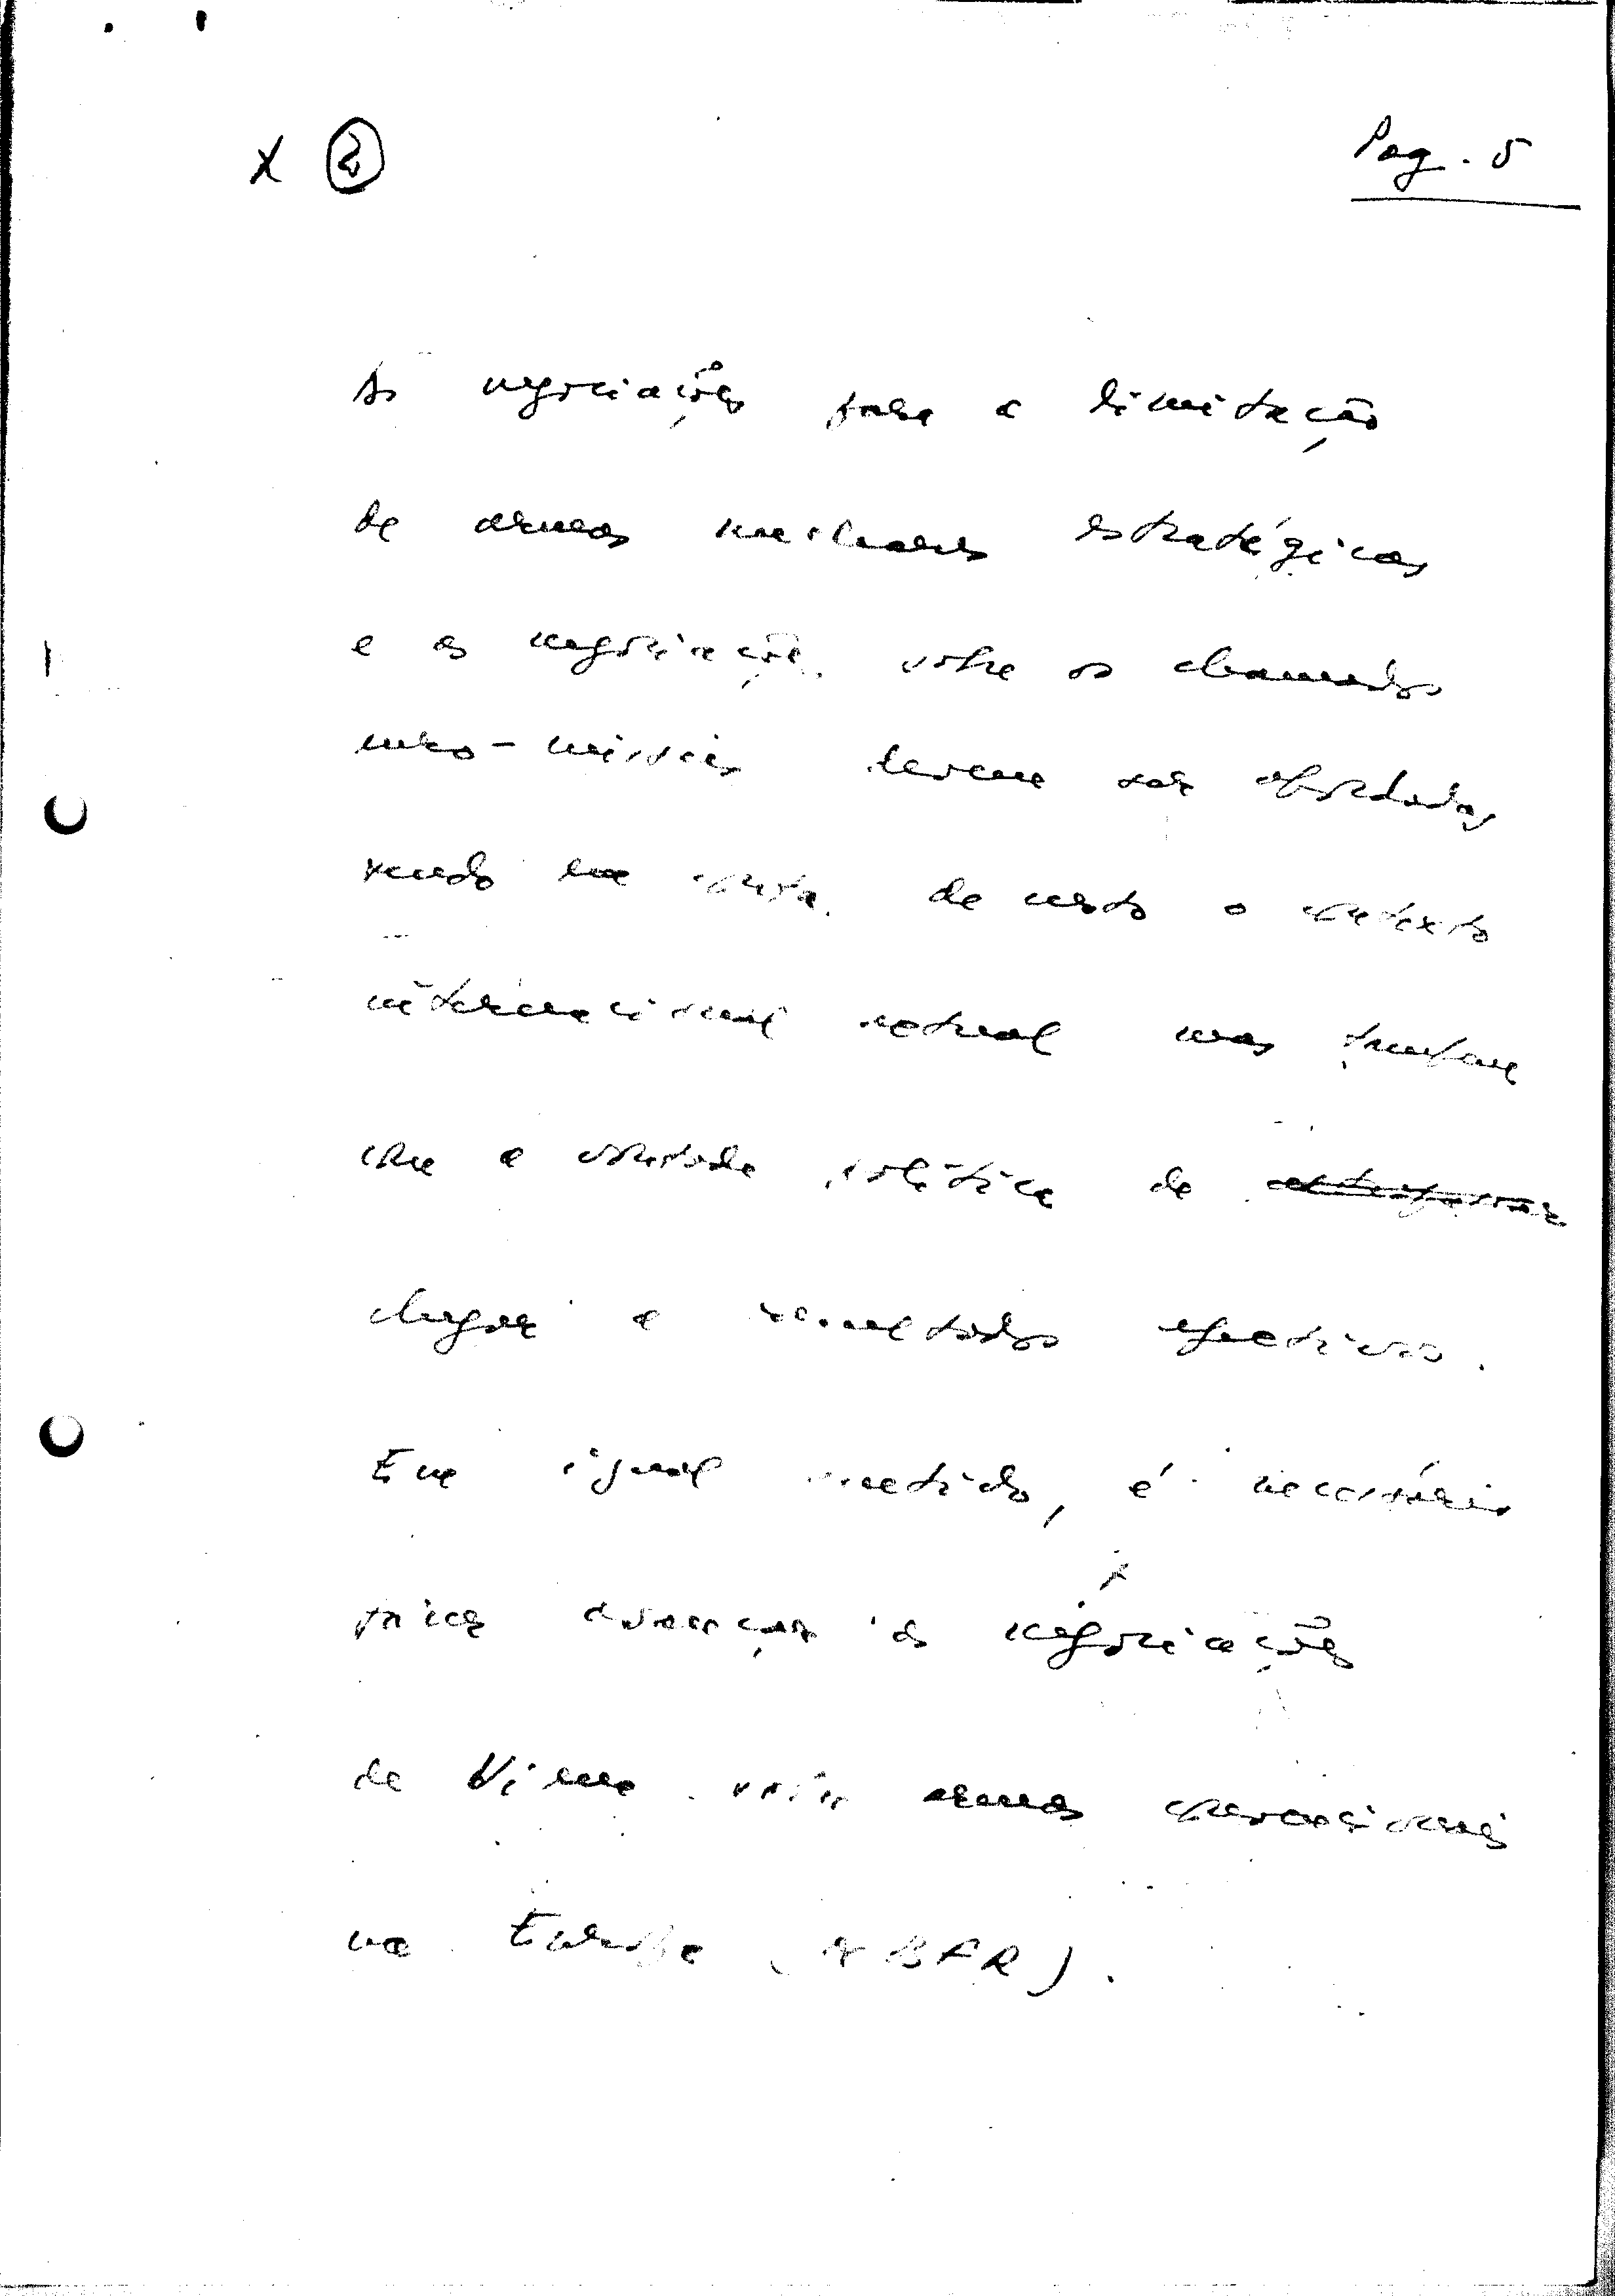 x ②
Pag. 5
As negociações para a limitação
de armas nucleares estratégicas
e as negociações sobre os chamados
euro-mísseis devem ser abordadas
tendo em conta de certo o contexto
internacional actual mas também
com a vontade política de
chegar a resultados efectivos.
Em igual sentido, é necessário
fazer avançar as negociações
de Viena sobre armas convencionais
na Europa (MBFR).